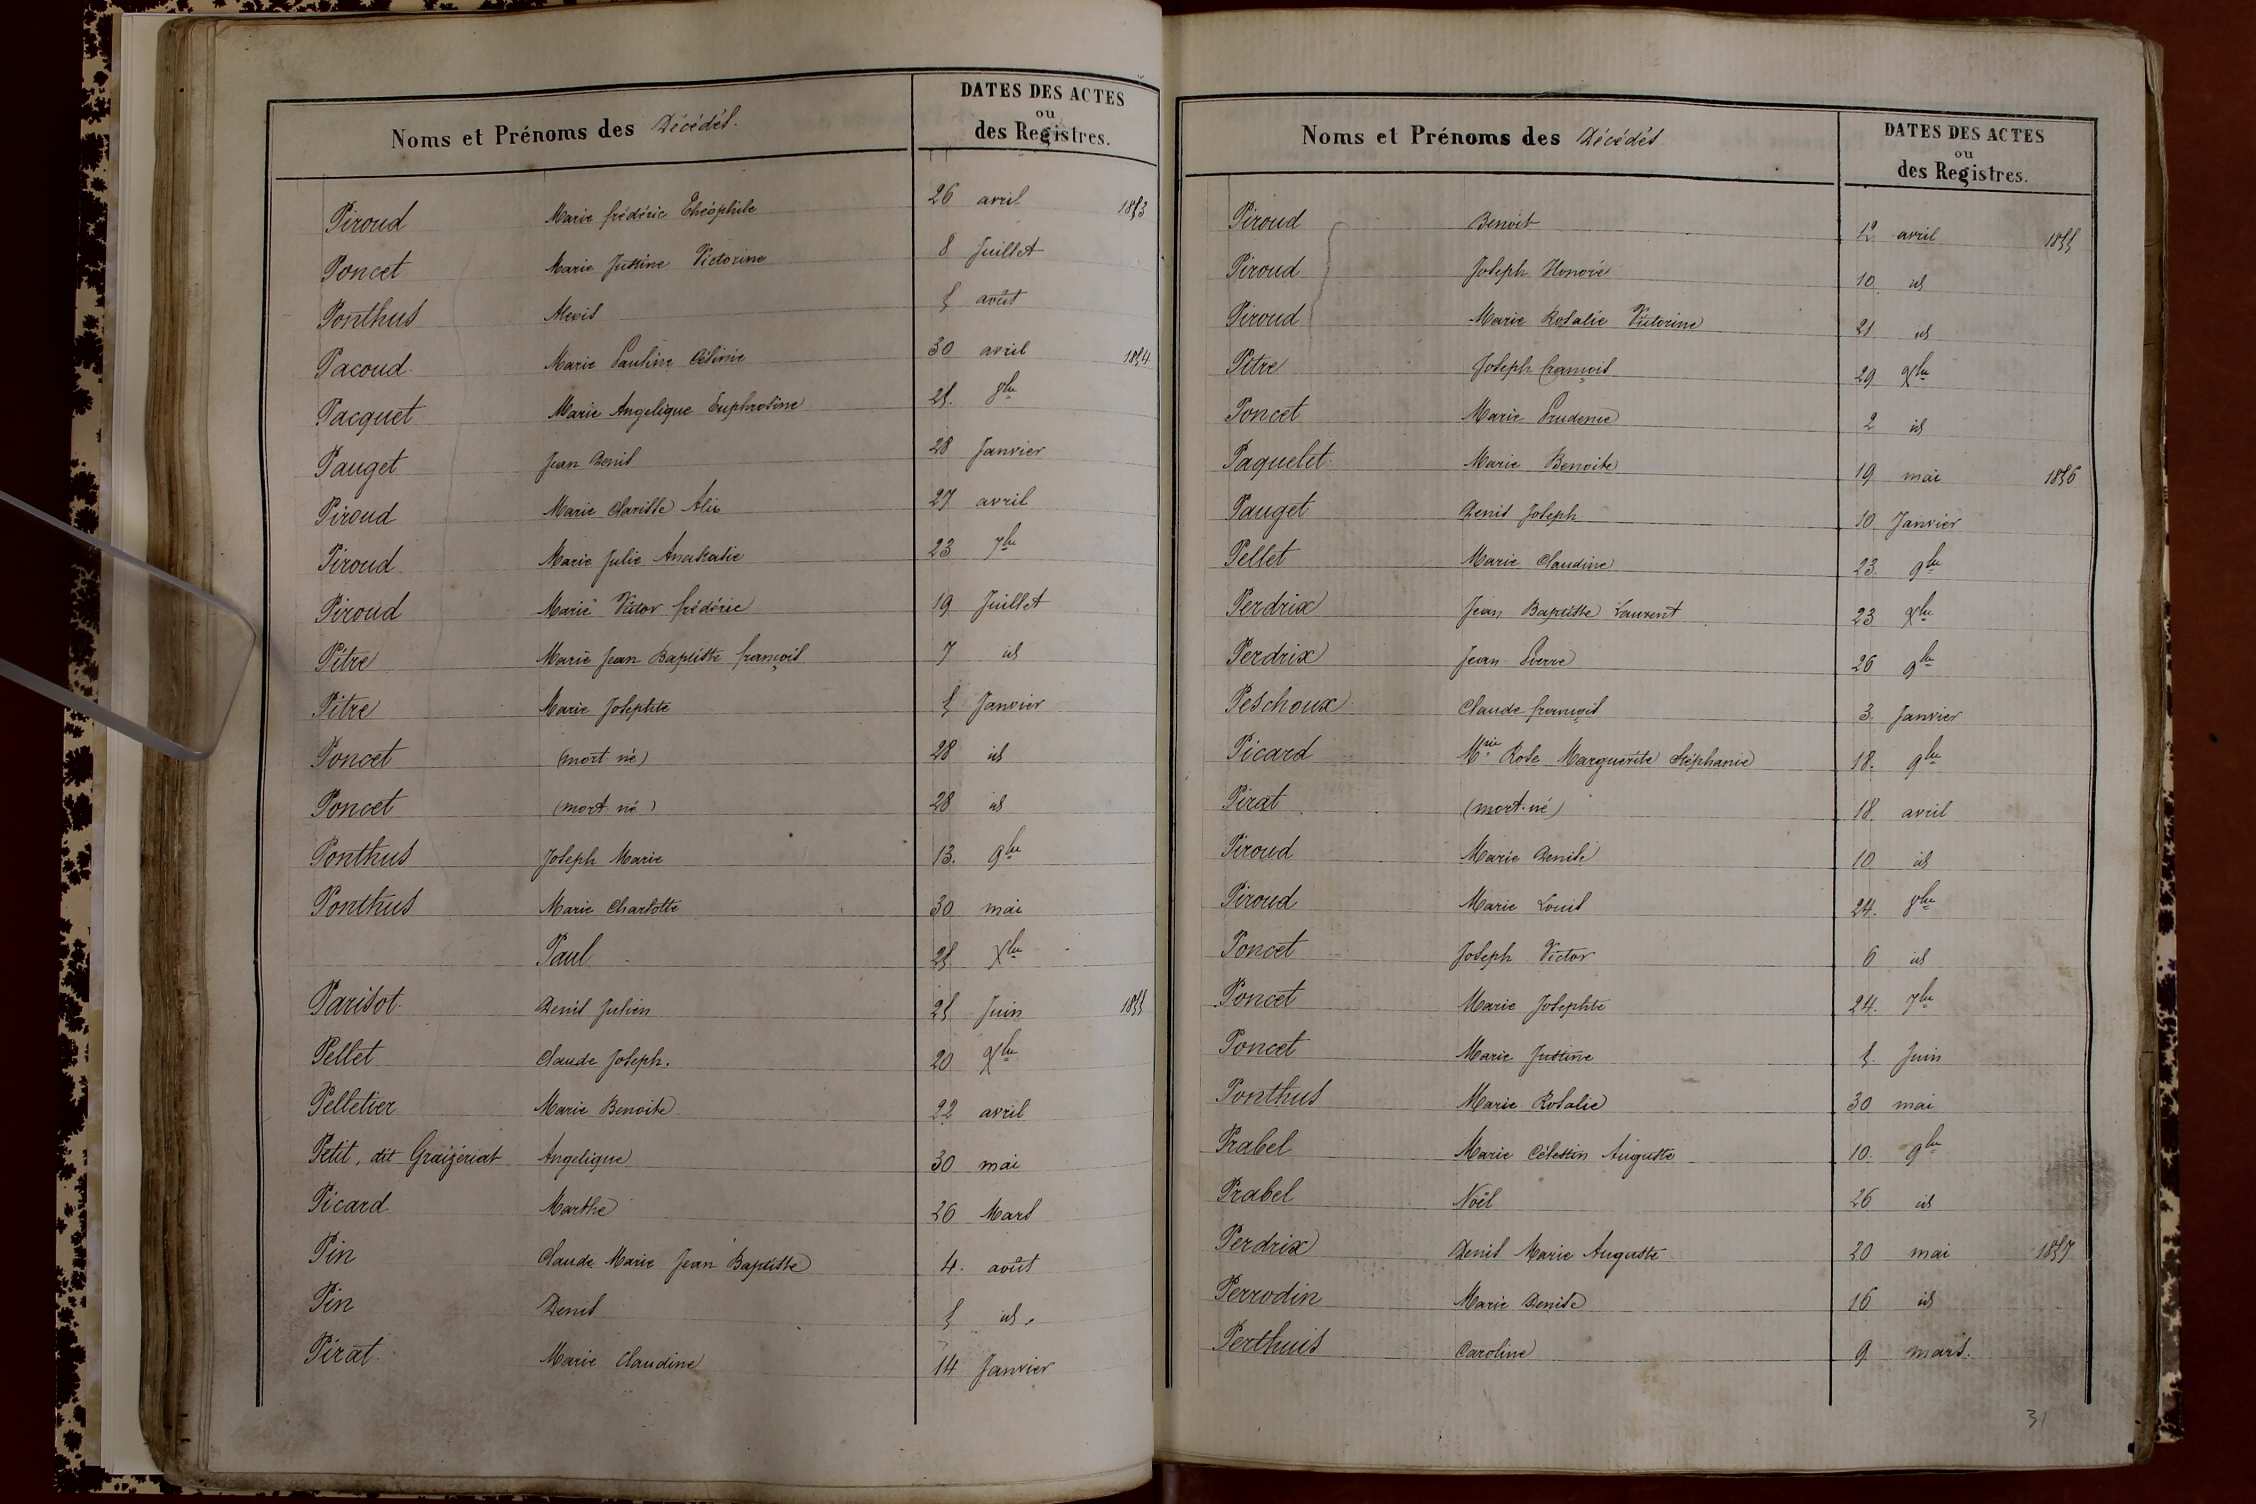 Noms et Prénoms des Décédés.
DATES DES ACTES
ou
des Registres.
Piroud Marie frédéric Théophile 26 avril 1853
Poncet Marie Justine Victorine 8 Juillet
Ponthus Alexis 5 août
Pacoud Marie Pauline Célinie 30 avril 1854
Pacquet Marie Angelique Euphrosine 25. 8bre
Pauget Jean Denis 28 Janvier
Piroud Marie Clarisse Alix 27 avril
Piroud Marie Julie 23 7bre
Piroud Marie Victor frédéric 19 Juillet
Pitre Marie Jean Baptiste françois 7 id
Pitre Marie Josephte 5 Janvier
Poncet (mort né) 28 id
Poncet (mort né) 28 id
Ponthus Joseph Marie 13. 9bre
Ponthus Marie Charlotte 30 mai
Paul 25 Xbre
Parisot Denis Julien 25 Juin 1855
Pellet Claude Joseph. 20 Xbre
Pelletier Marie Benoite 22 avril
Petit, dit Graizeriat Angelique 30 mai
Picard Marthe 26 Mars
Pin Claude Marie Jean Baptiste 4. août
Pin Denis 5 id.
Pirat Marie Claudine 14 Janvier
Noms et Prénoms des Décédés
DATES DES ACTES
ou
des Registres.
Piroud Benoit 12 avril 1855
Piroud Joseph Honoré 10 id
Piroud Marie Rosalie Victorine 21 id
Pitre Joseph françois 29 Xbre
Poncet Marie Prudence 2 id
Paquelet Marie Benoite 19 mai 1856
Pauget Denis Joseph 10 Janvier
Pellet Marie Claudine 23. 9bre
Perdrix Jean Baptiste Laurent 23 Xbre
Perdrix Jean Pierre 26 9bre
Peschoux Claude françois 3. Janvier
Picard Mrie Rose Marguerite Stéphanie 18. 9bre
Pirat (mort-né) 18 avril
Piroud Marie Denise 10 id
Piroud Marie Louis 24. 8bre
Poncet Joseph Victor 6 id
Poncet Marie Josephte 24. 7bre
Poncet Marie Justine 5. Juin
Ponthus Marie Rosalie 30 mai
Prabel Marie Célestin Auguste 10. 9bre
Prabel Noël 26 id
Perdrix Denis Marie Auguste 20 mai 1857
Perrodin Marie Denise 16 id
Perthuis Caroline 9 mars.
31